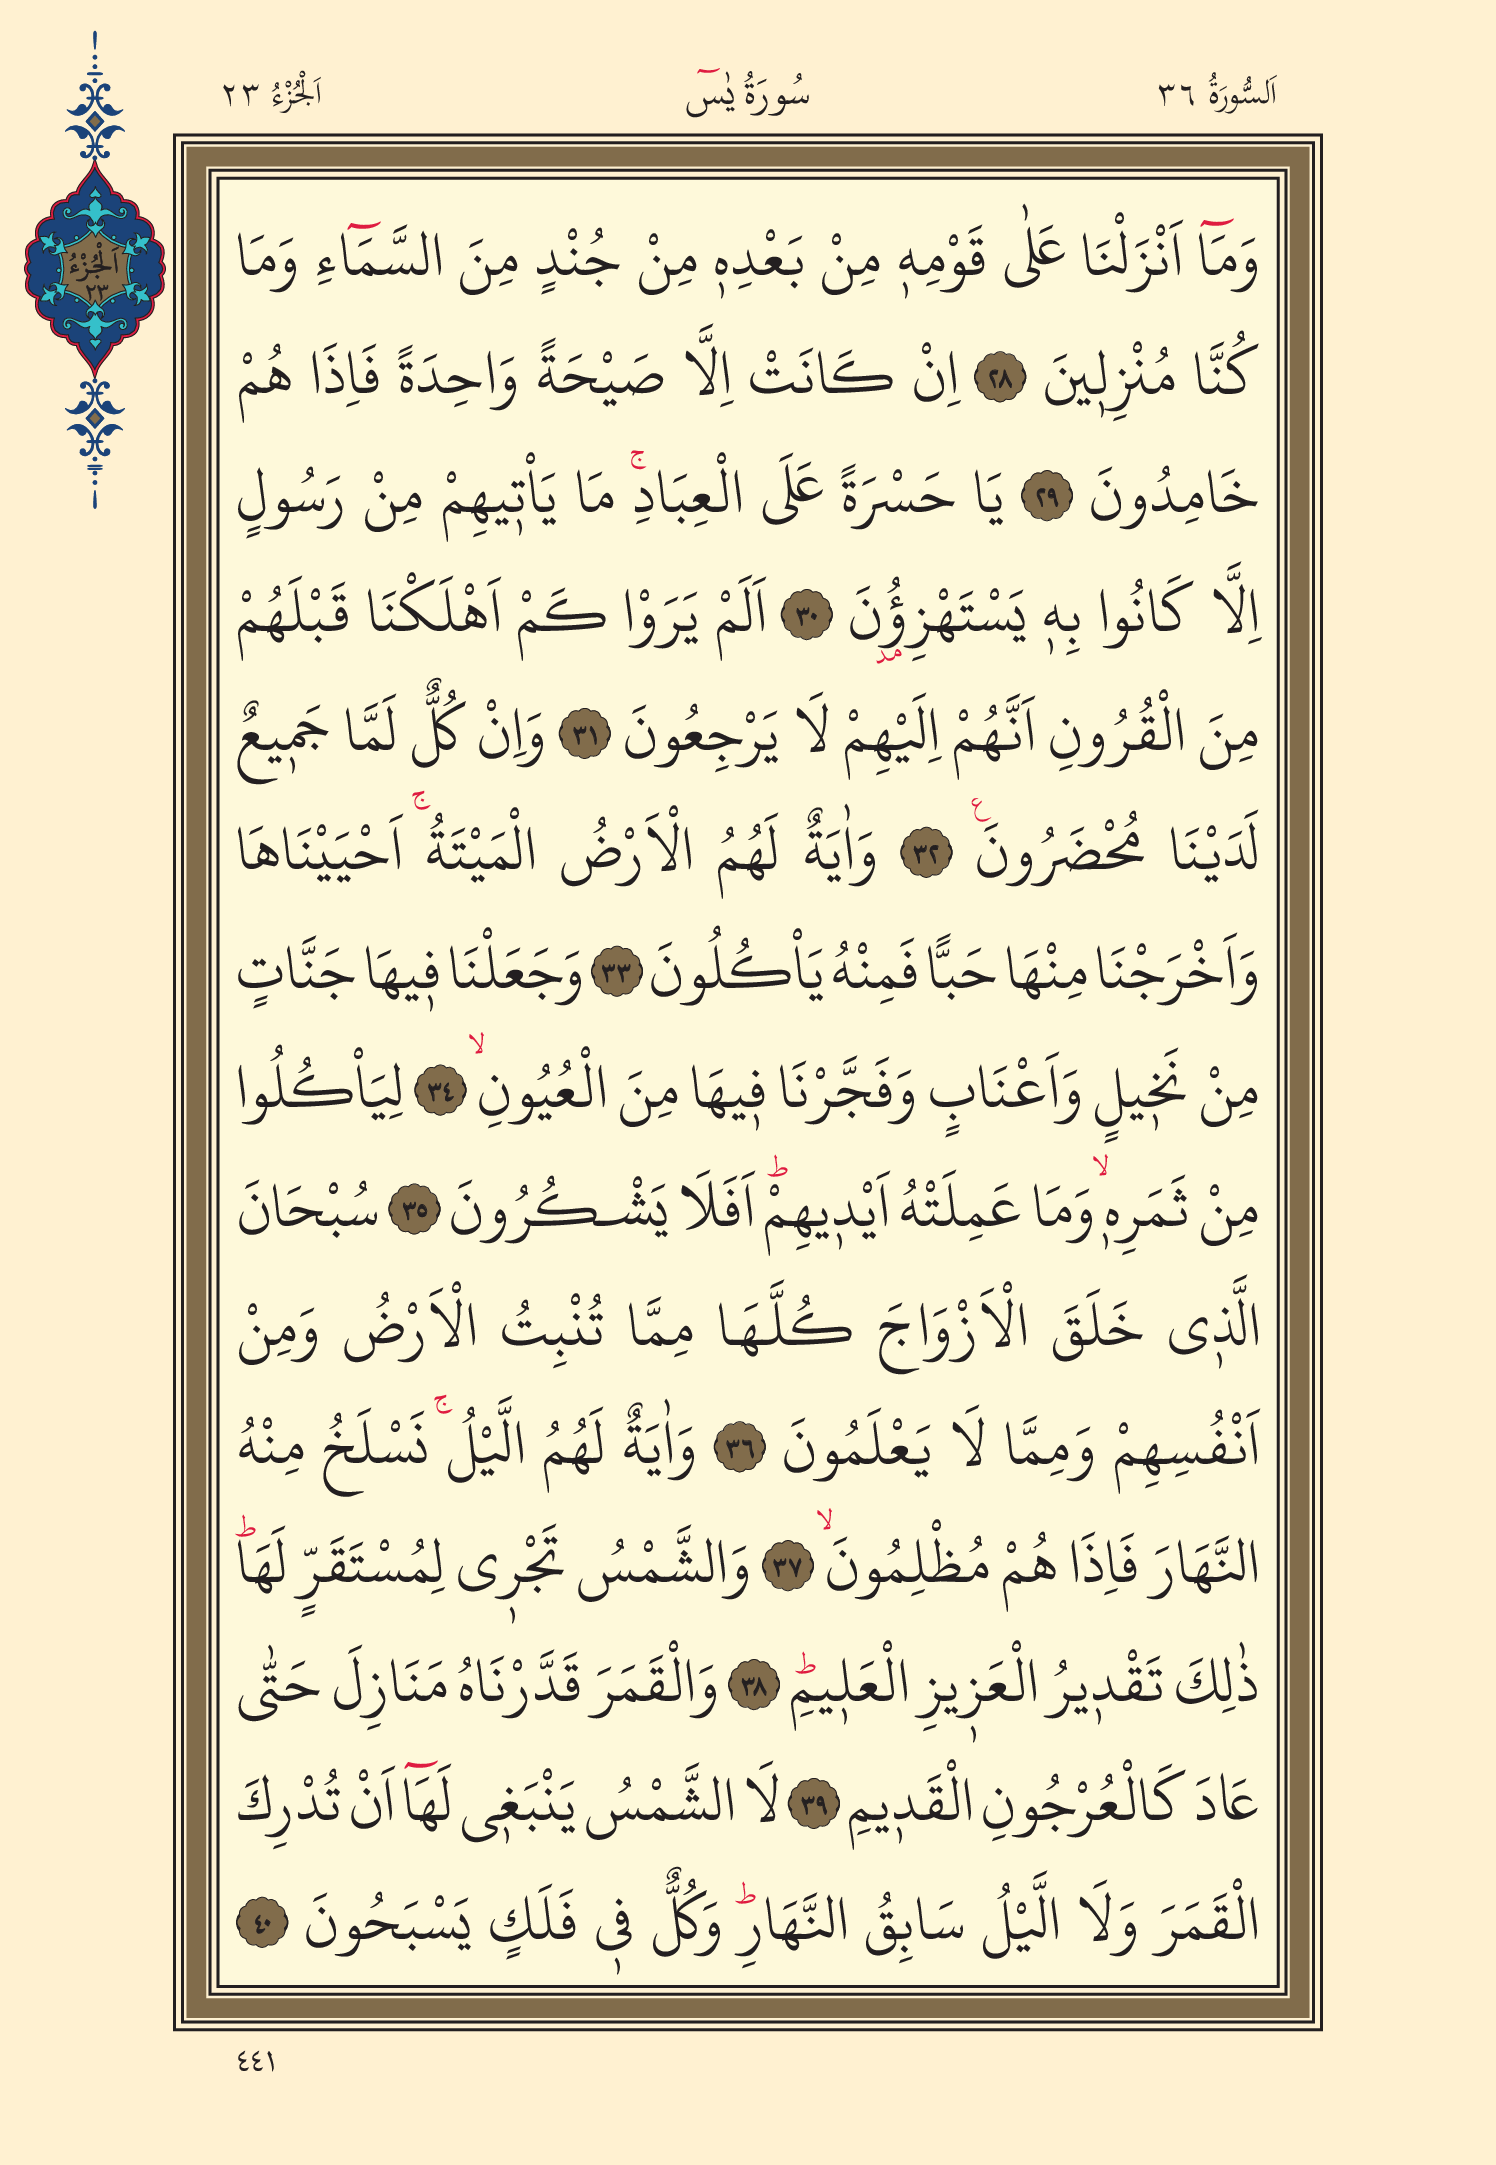 اَلسُّورَةُ ٣٦
سُورَةُ يٰسٓ
اَلْجُزْءُ ٢٣
اَلْجُزْءُ
٢٣
وَمَٓا اَنْزَلْنَا عَلٰى قَوْمِهٖ مِنْ بَعْدِهٖ مِنْ جُنْدٍ مِنَ السَّمَٓاءِ وَمَا
كُنَّا مُنْزِلٖينَ ﴿٢٨﴾ اِنْ كَانَتْ اِلَّا صَيْحَةً وَاحِدَةً فَاِذَا هُمْ
خَامِدُونَ ﴿٢٩﴾ يَا حَسْرَةً عَلَى الْعِبَادِۚ مَا يَاْتٖيهِمْ مِنْ رَسُولٍ
اِلَّا كَانُوا بِهٖ يَسْتَهْزِؤُ۫نَ ﴿٣٠﴾ اَلَمْ يَرَوْا كَمْ اَهْلَكْنَا قَبْلَهُمْ
مِنَ الْقُرُونِ اَنَّهُمْ اِلَيْهِمْ لَا يَرْجِعُونَ ﴿٣١﴾ وَاِنْ كُلٌّ لَمَّا جَمٖيعٌ
لَدَيْنَا مُحْضَرُونَࣖ ﴿٣٢﴾ وَاٰيَةٌ لَهُمُ الْاَرْضُ الْمَيْتَةُۚ اَحْيَيْنَاهَا
وَاَخْرَجْنَا مِنْهَا حَبًّا فَمِنْهُ يَاْكُلُونَ ﴿٣٣﴾ وَجَعَلْنَا فٖيهَا جَنَّاتٍ
مِنْ نَخٖيلٍ وَاَعْنَابٍ وَفَجَّرْنَا فٖيهَا مِنَ الْعُيُونِۙ ﴿٣٤﴾ لِيَاْكُلُوا
مِنْ ثَمَرِهٖۙ وَمَا عَمِلَتْهُ اَيْدٖيهِمْؕ اَفَلَا يَشْكُرُونَ ﴿٣٥﴾ سُبْحَانَ
الَّذٖى خَلَقَ الْاَزْوَاجَ كُلَّهَا مِمَّا تُنْبِتُ الْاَرْضُ وَمِنْ
اَنْفُسِهِمْ وَمِمَّا لَا يَعْلَمُونَ ﴿٣٦﴾ وَاٰيَةٌ لَهُمُ الَّيْلُۚ نَسْلَخُ مِنْهُ
النَّهَارَ فَاِذَا هُمْ مُظْلِمُونَۙ ﴿٣٧﴾ وَالشَّمْسُ تَجْرٖى لِمُسْتَقَرٍّ لَهَاؕ
ذٰلِكَ تَقْدٖيرُ الْعَزٖيزِ الْعَلٖيمِؕ ﴿٣٨﴾ وَالْقَمَرَ قَدَّرْنَاهُ مَنَازِلَ حَتّٰى
عَادَ كَالْعُرْجُونِ الْقَدٖيمِ ﴿٣٩﴾ لَا الشَّمْسُ يَنْبَغٖى لَهَٓا اَنْ تُدْرِكَ
الْقَمَرَ وَلَا الَّيْلُ سَابِقُ النَّهَارِؕ وَكُلٌّ فٖى فَلَكٍ يَسْبَحُونَ ﴿٤٠﴾
٤٤١